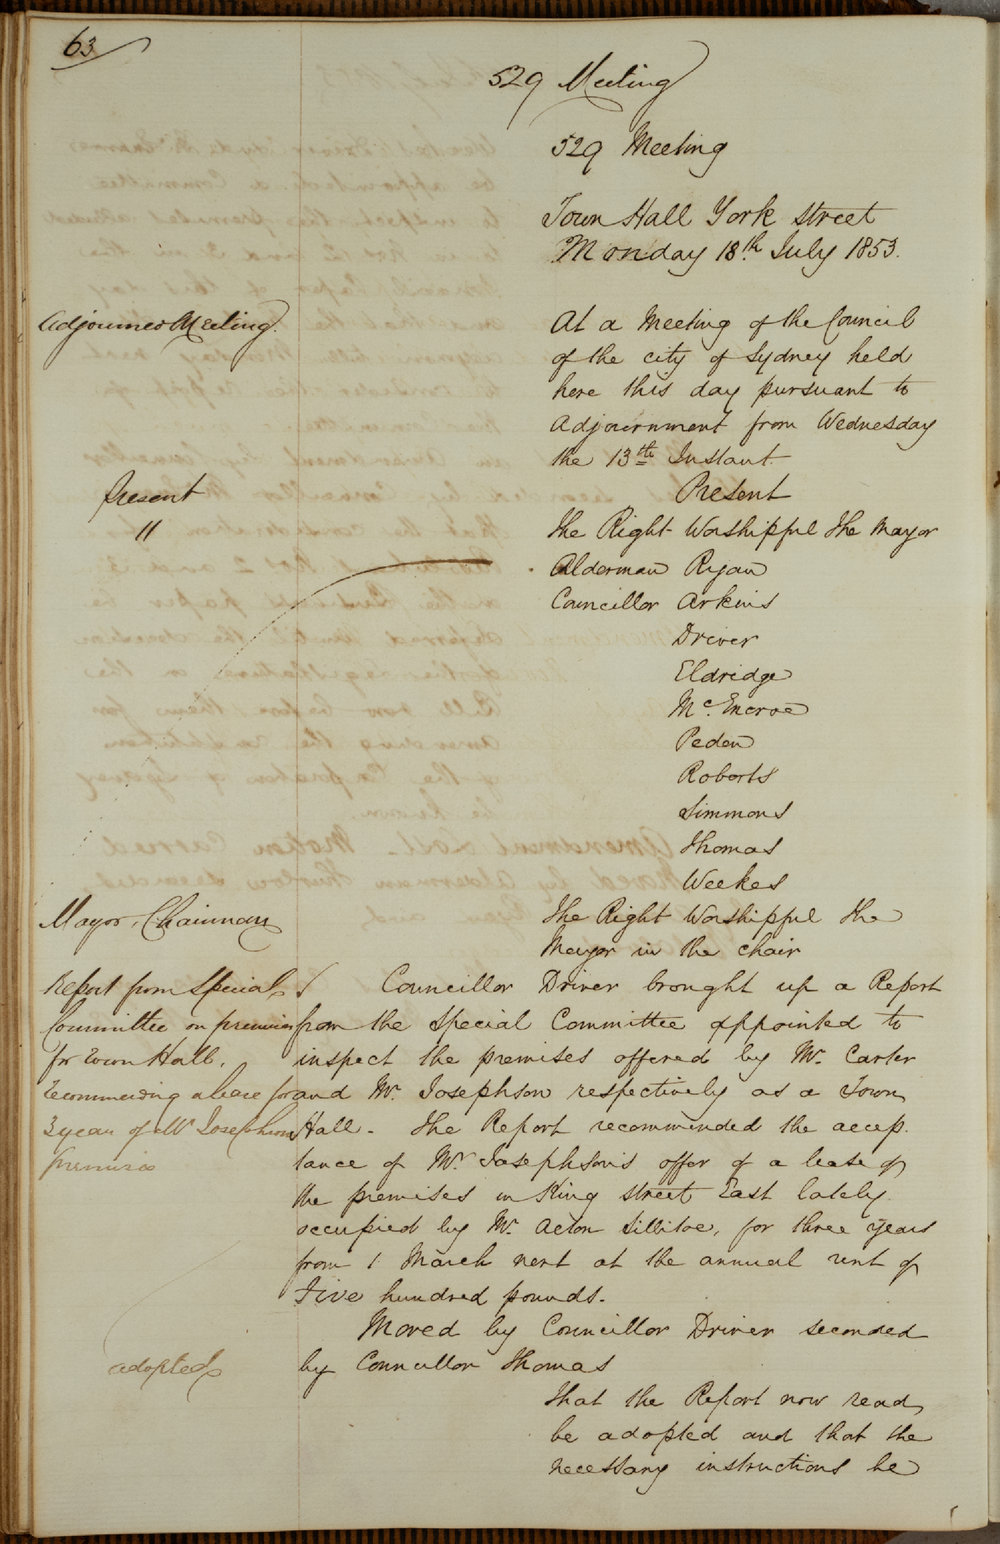 63
529 Meeting
529 Meeting
Town Hall York Street
Monday 18th July 1853.
Adjourned Meeting.
At a Meeting of the Council
of the city of Sydney held
here this day pursuant to
Adjournment from Wednesday
the 13th Instant.
Present
Present
"
The Right Worshipful The Mayor
Alderman Ryan
Councillor Arkins
Driver
Eldridge
Mc.Encroe
Peden
Roberts
Simmons
Thomas
Weekes
Mayor, Chairman
The Right Worshipful The
Mayor in the chair
Report from Special
Committee on premises
for Town Hall,
recommending a lease for
3 years of Mr Josephsons
premises
Councillor Driver brought up a Report
from the Special Committee appointed to
inspect the premises offered by Mr. Carter
and Mr. Josephson respectively as a Town
Hall. The Report recommended the accep.
tance of Mr. Josephson's offer of a lease of
the premises in King Street East lately
occupied by Mr. Acton Sillitoe, for three years
from 1 March next at the annual rent of
Five hundred pounds.
Moved by Councillor Driver seconded
adopted
by Councillor Thomas
That the Report now read
be adopted and that the
necessary instructions be